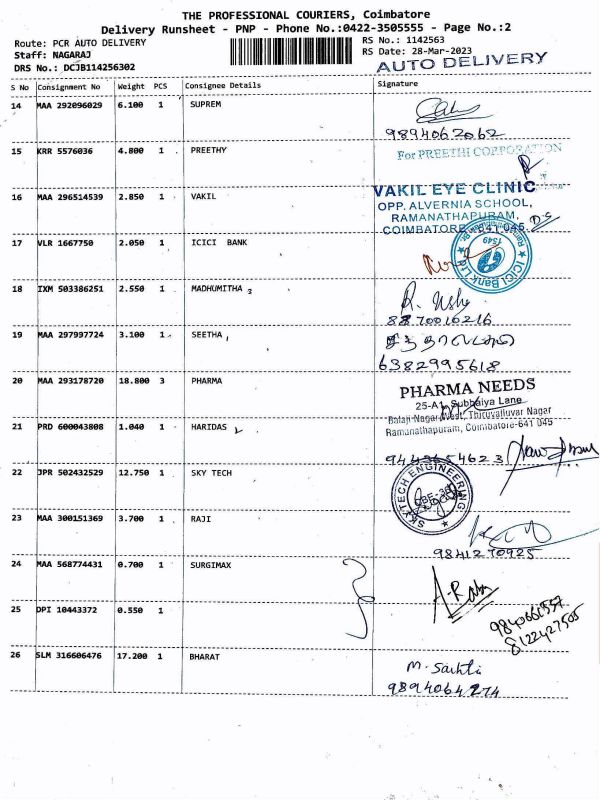 THE PROFESSIONAL COURIERS, Coimbatore
Delivery Runsheet - PNP - Phone No.:0422-3505555 - Page No.:2
Route: PCR AUTO DELIVERY
Staff: NAGARAJ
DRS No.: DCJB114256302
RS No.: 1142563
RS Date: 28-Mar-2023
AUTO DELIVERY
S No Consignment No Weight PCS Consignee Details Signature
14 MAA 292096029 6.100 1 SUPREM
9894062062
15 KRR 5576036 4.800 1 PREETHY
For PREETHI CORPORATION
16 MAA 296514539 2.850 1 VAKIL
VAKIL EYE CLINIC
OPP. ALVERNIA SCHOOL,
RAMANATHAPURAM,
COIMBATORE - 641 045.
17 VLR 1667750 2.050 1 ICICI BANK
ICICI Bank Ltd
1549
18 IXM 503386251 2.550 1 MADHUMITHA
R. Usha
8870016216
19 MAA 297997724 3.100 1 SEETHA
6382995618
20 MAA 293178720 18.800 3 PHARMA
PHARMA NEEDS
25-A1, Subbaiya Lane
Balaji Nagar West, Thiruvalluvar Nagar
Ramanathapuram, Coimbatore-641 045
21 PRD 600043808 1.040 1 HARIDAS
22 JPR 502432529 12.750 1 SKY TECH
SKYTECH ENGINEERING
23 MAA 300151369 3.700 1 RAJI
9841270925
24 MAA 568774431 0.700 1 SURGIMAX
25 DPI 10443372 0.550 1
8122427505
26 SLM 316606476 17.200 1 BHARAT
M. Sakthi
9894064274